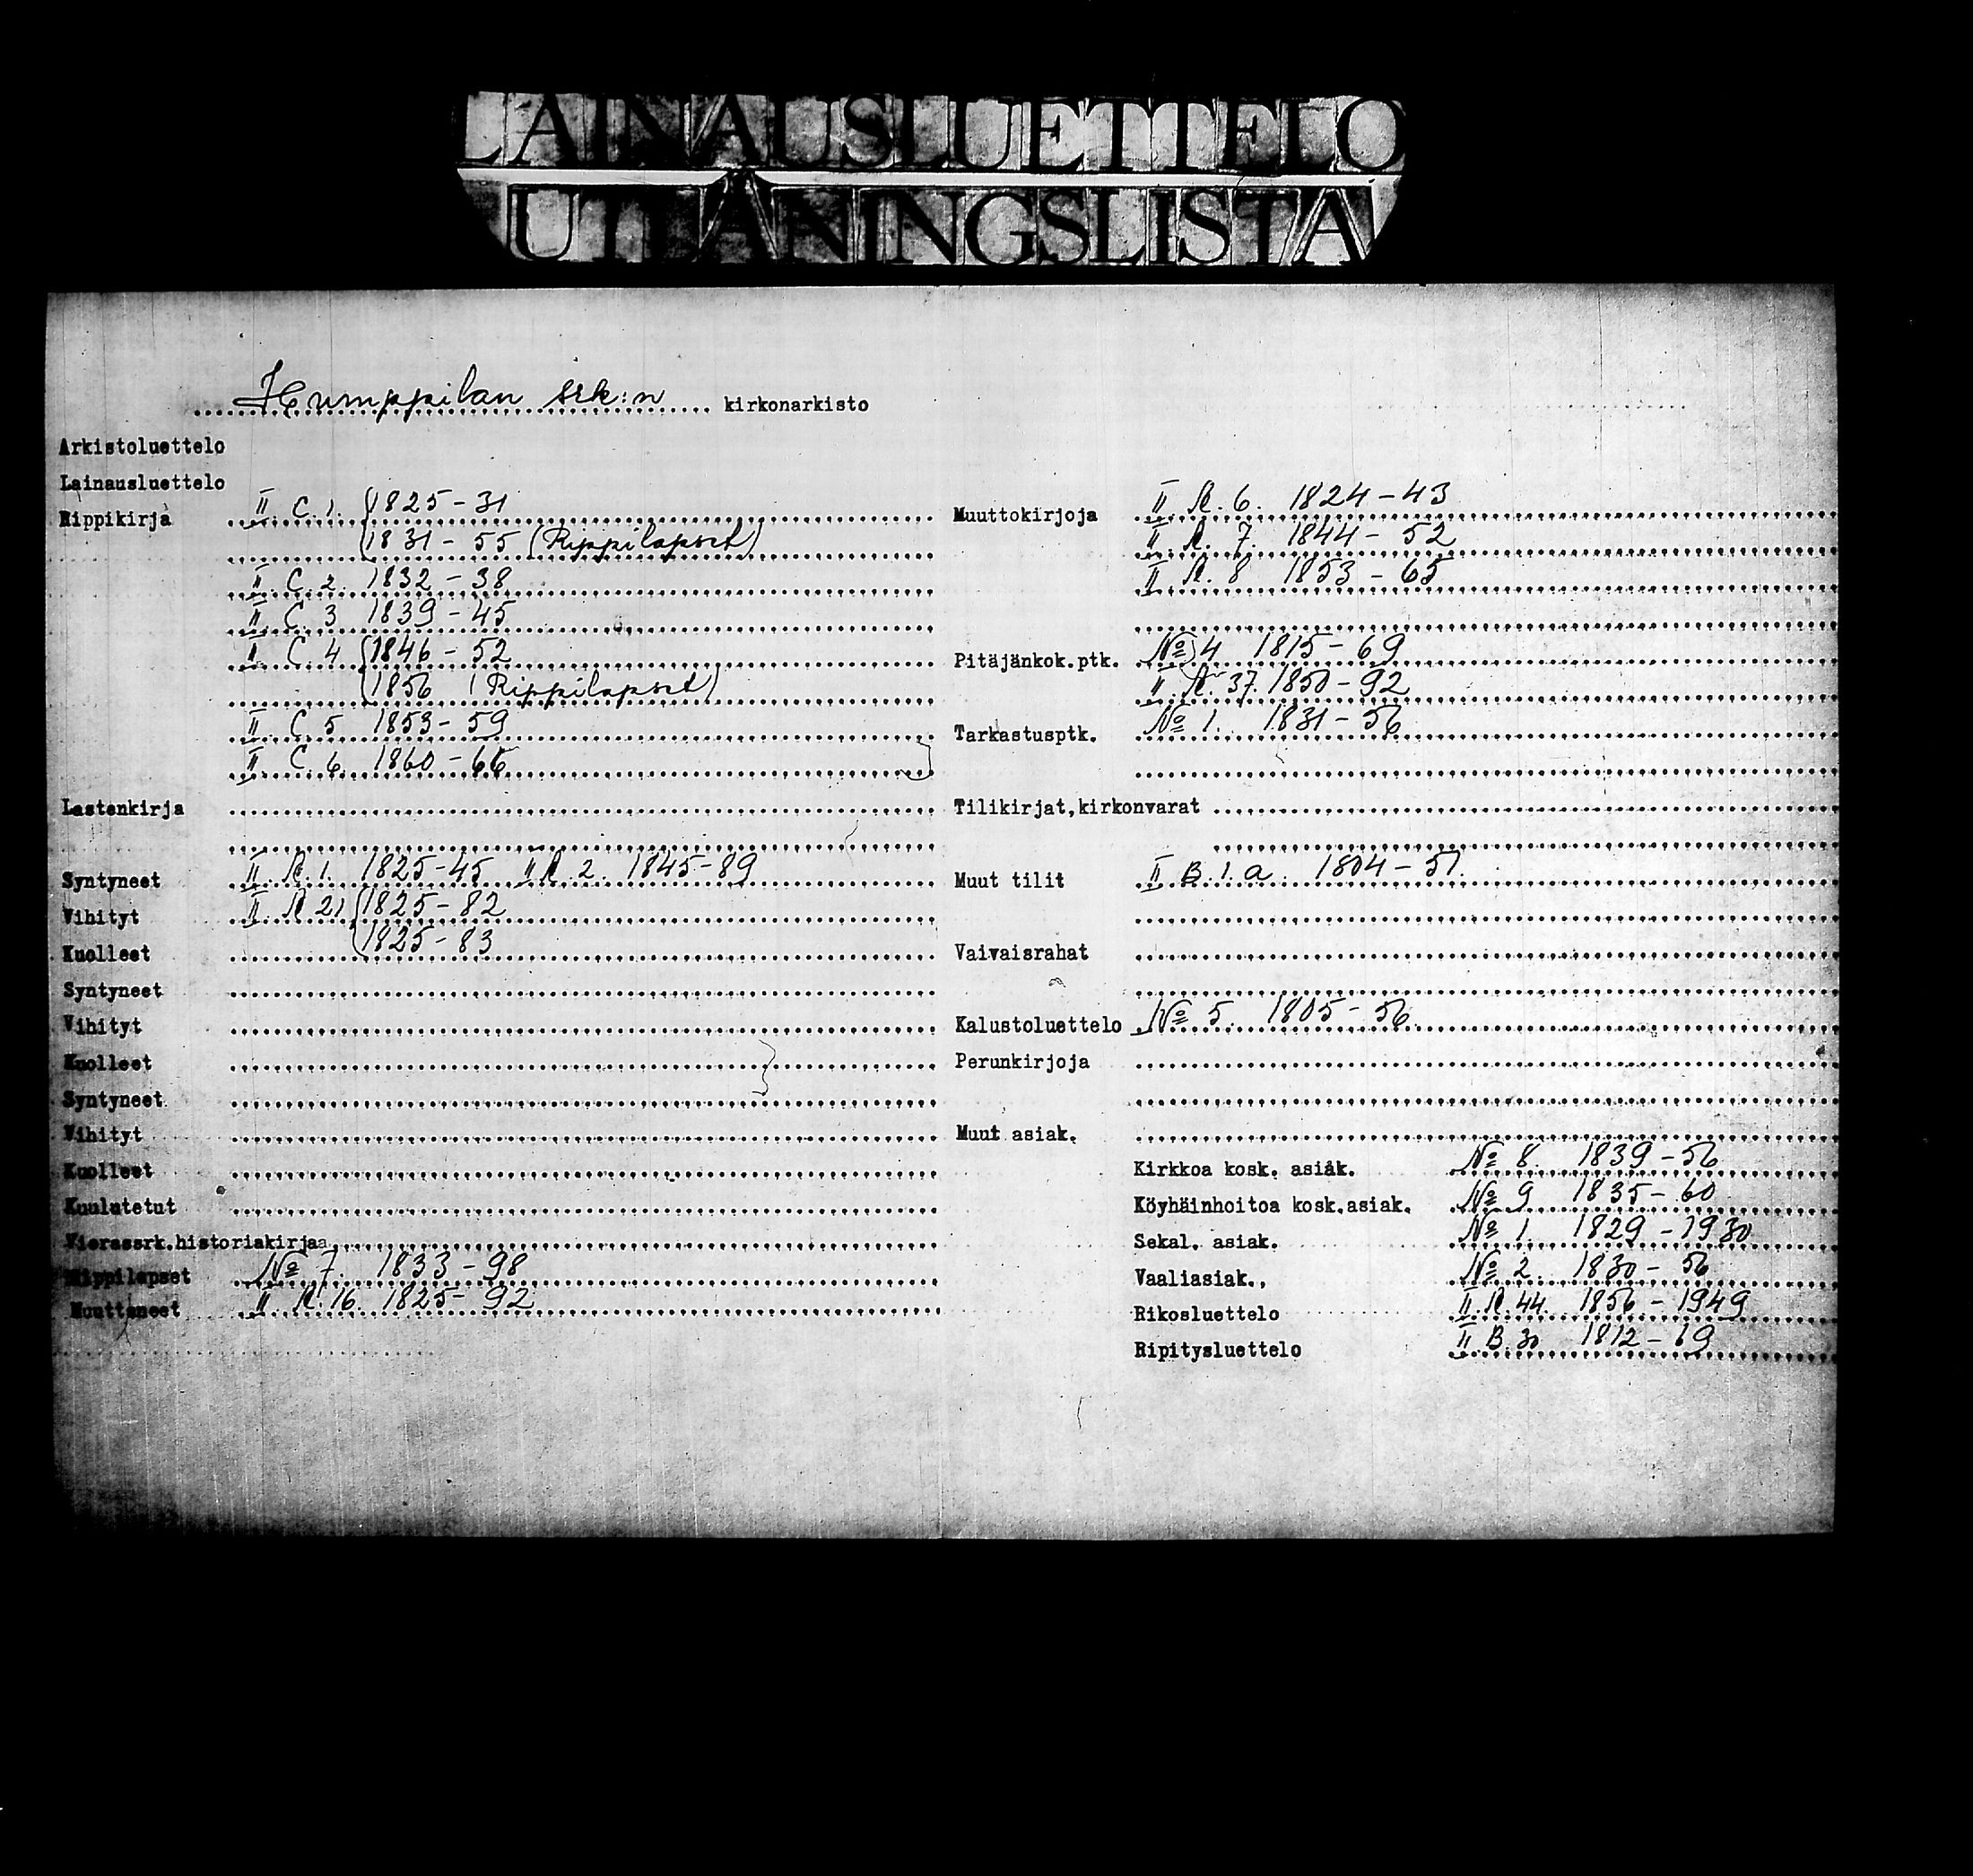 LAINAUSLUETTELO
UTLÅNINGSLISTA
Humppilan srk:n kirkonarkisto
Arkistoluettelo
Lainausluettelo
Rippikirja II C. 1. 1825-31
1831-55 (Rippilapset)
II C. 2. 1832-38
II C. 3 1839-45
II C. 4 1846-52
1856 (Rippilapset)
II C. 5 1853-59
II C. 6. 1860-66
Lastenkirja
Syntyneet II A. 1. 1825-45 II A. 2. 1845-89
Vihityt II A 21 1825-82
Kuolleet 1825-83
Syntyneet
Vihityt
Kuolleet
Syntyneet
Vihityt
Kuolleet
Kuulutetut
Vierassrk.historiakirjaa
Rippilapset No 7. 1833-98
Muuttaneet II A. 16. 1825-92
Muuttokirjoja II A. 6. 1824-43
II A. 7. 1844-52
II A. 8 1853-65
Pitäjänkok.ptk. No 4 1815-69
II A. 37. 1850-92
Tarkastusptk. No 1. 1831-56
Tilikirjat,kirkonvarat
Muut tilit II B. 1. a. 1804-51.
Vaivaisrahat
Kalustoluettelo No 5. 1805-56
Perunkirjoja
Muut asiak.
Kirkkoa kosk. asiak. No 8. 1839-56
Köyhäinhoitoa kosk.asiak. No 9 1835-60
Sekal. asiak. No 1. 1829-1930
Vaaliasiak., No 2. 1830-56
Rikosluettelo II A. 44. 1856-1949
Ripitysluettelo II B. 30 1812-19